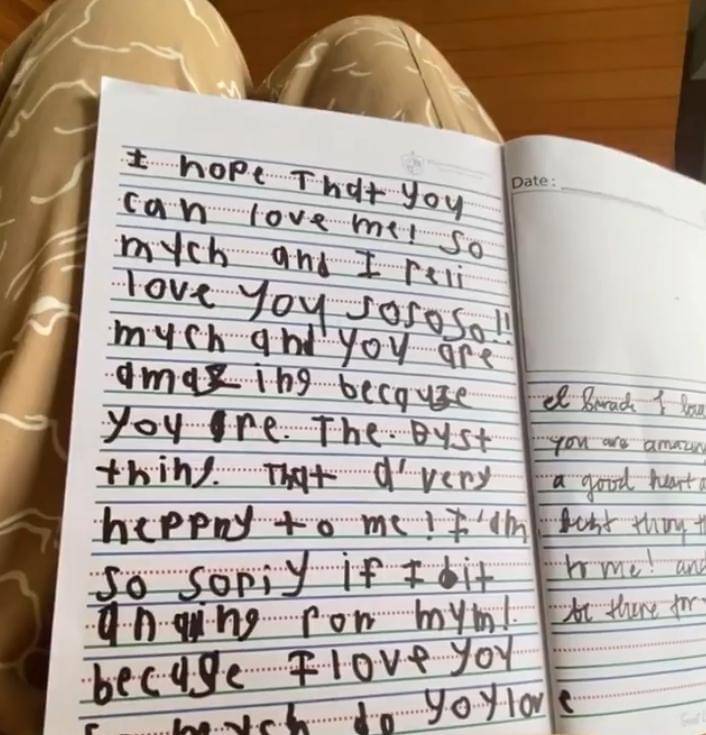 I hope That yoy
can love me! so
mych and I reli
love yoy sososo!!
mych and yoy are
amazing becquse
yoy are. The. Byst
thing. That a' very
heppny to me! I'am
so sopiy if I bit
ping ron mym!
becayse I love yoy
mych do yoylove
Date:
I love
you are amazing
a good heart a
best thing t
to me! and
be there for